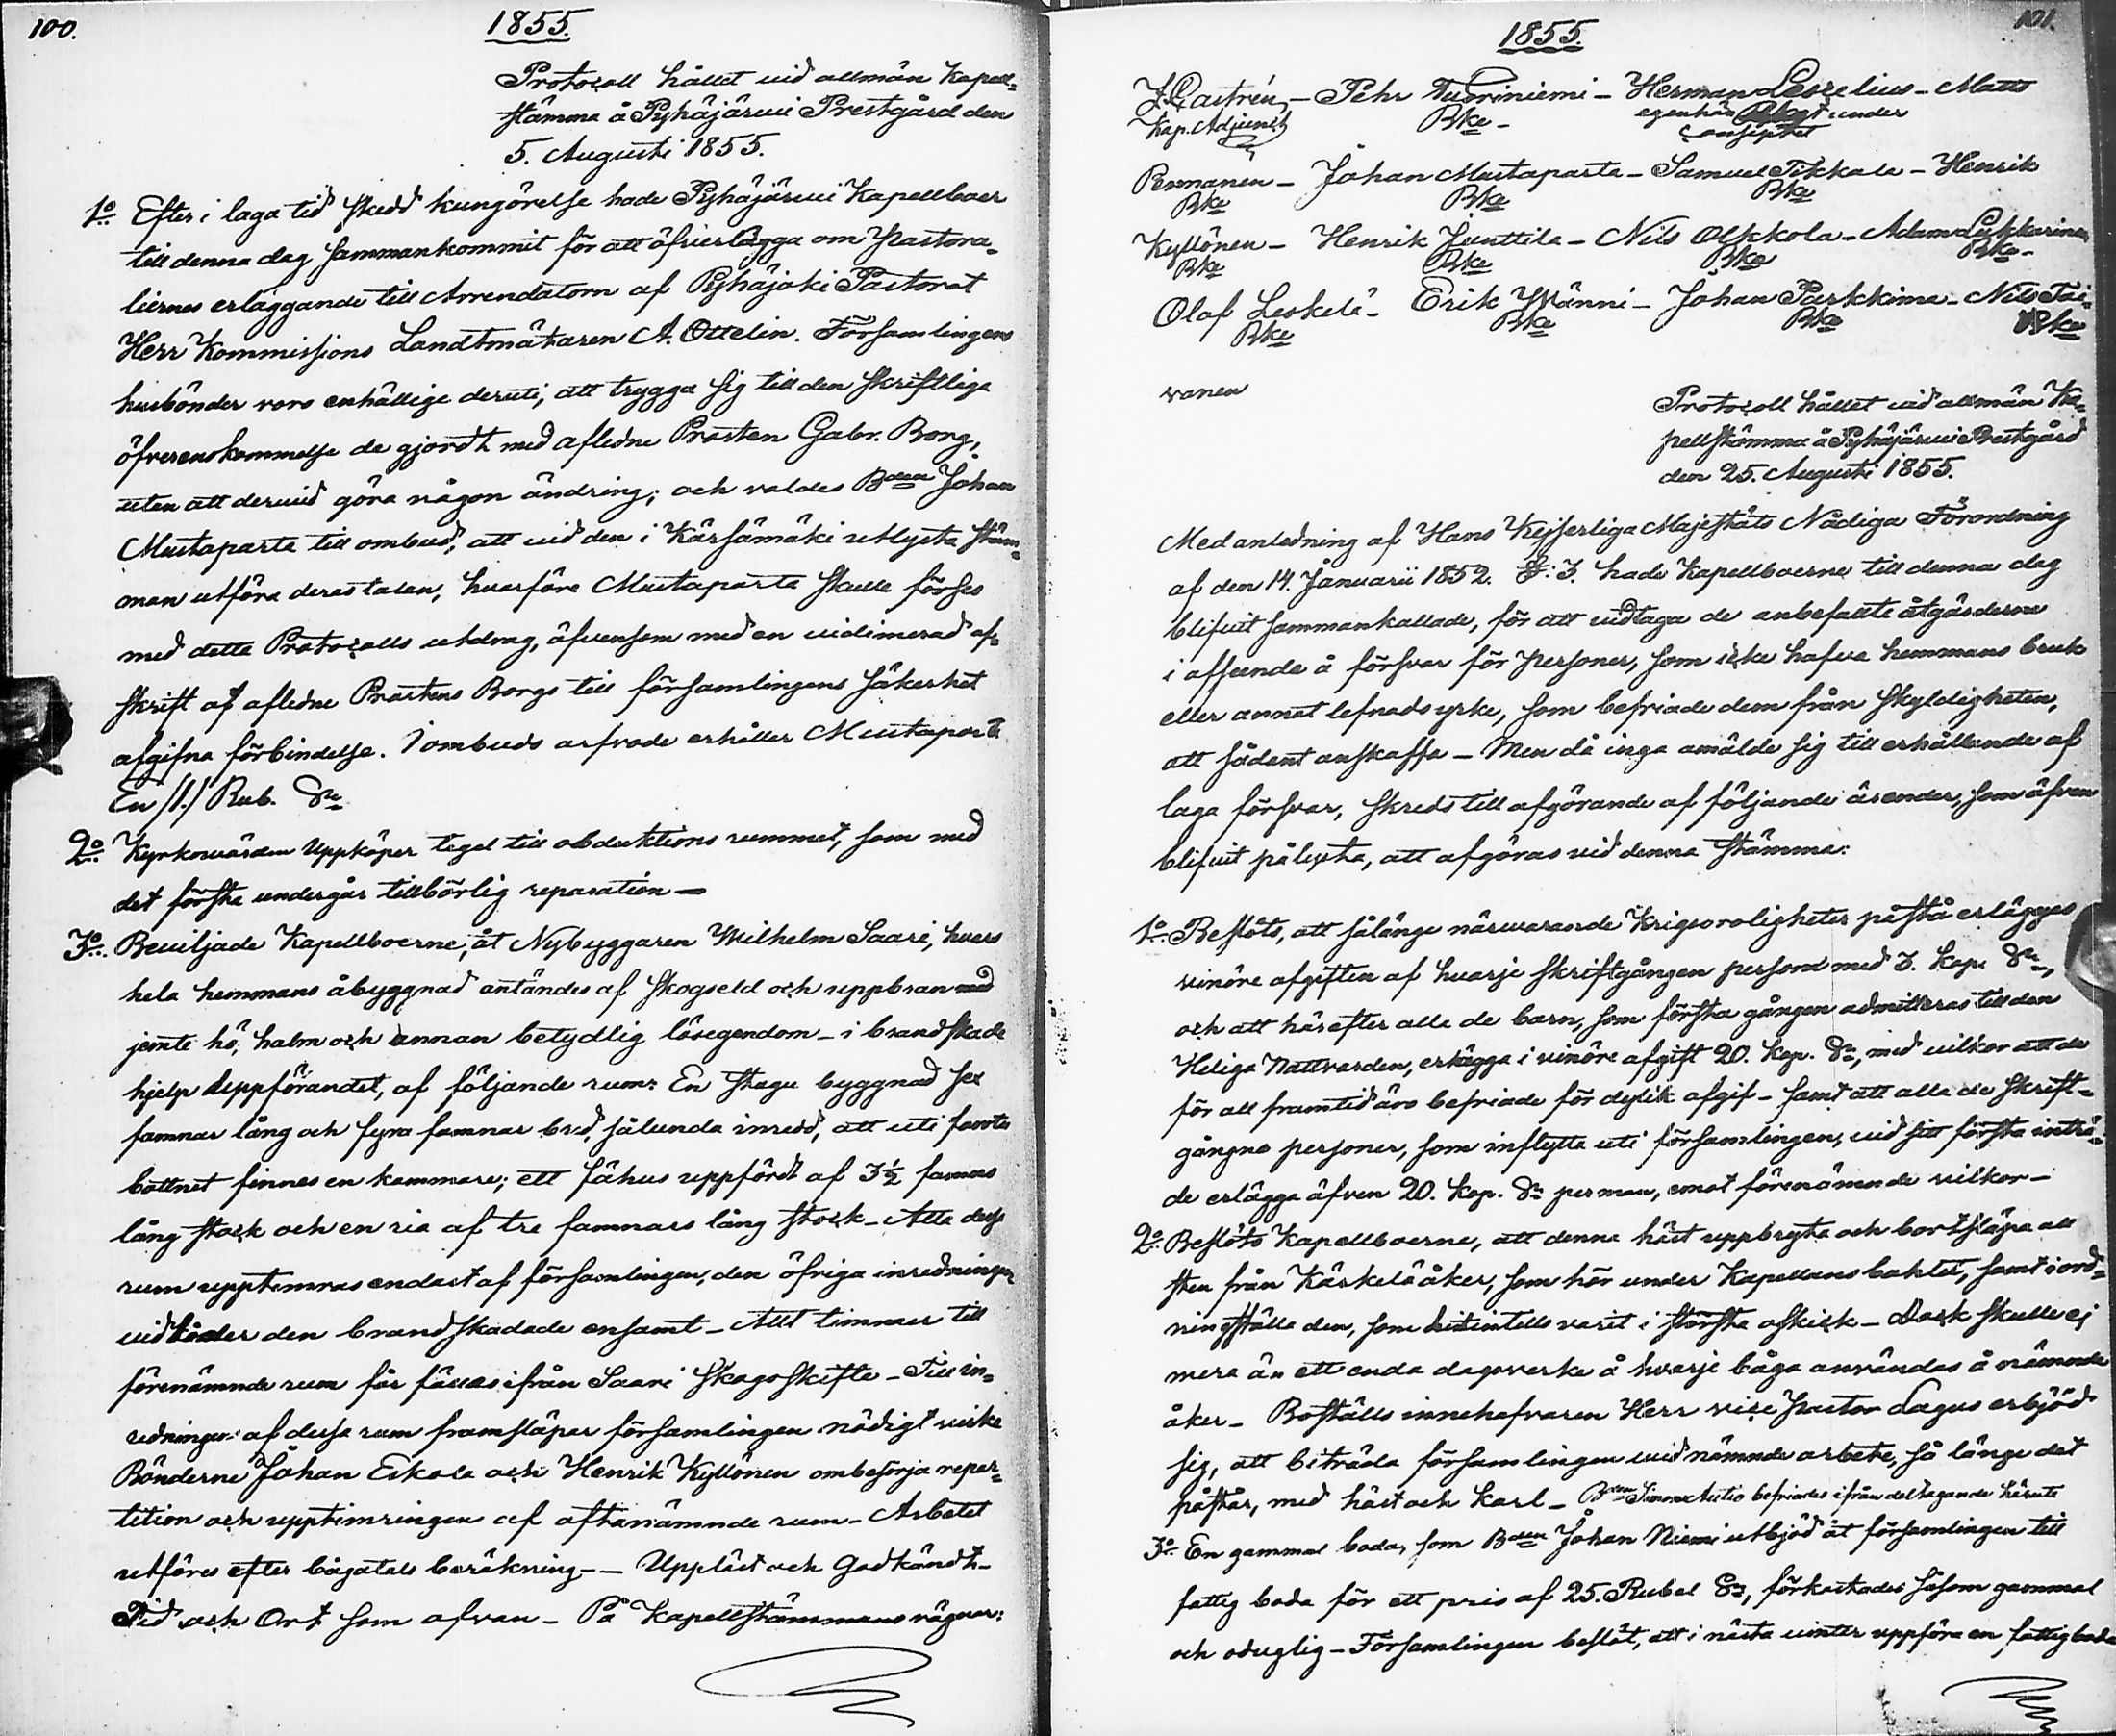 100.
1855.
Protocoll hållet vid allmän Kapell-
stämma å Pyhäjärvi Prestgård den
5. Augusti 1855.
1o Efter i laga tid skedd kungörelse hade Pyhäjärvi Kapellboer
till denna dag sammankommit för att öfverlägga om pastora-
liernes erläggande till Arrendatorn af Pyhäjoki Pastorat
Herr Kommissions Landtmätaren A. Ottelin. Församlingens
husbönder voro enhällige deruti, att trygga sig till den skriftliga
öfverenskommelse de gjordt med aflidne Prosten Gabr. Borg,
utan att dervid göra någon ändring; och valdes Bden Johan
Mustaparta till ombud, att vid den i Kärsämäki utlysta stäm-
man utföra deras talan, hvarföre Mustaparta skulle förses
med detta Protocolls utdrag, äfvensom med en vidimerad af-
skrift af aflidne Prostens Borgs till församlingens säkerhet
afgifna förbindelse. I ombuds arfvode erhåller Mustaparta
En /1./ Rub. Sr
2o Kyrkovärden Uppköper tegel till obduktions rummet, som med
det första undergår tillbörlig reparation —
3o. Beviljade Kapellboerne, åt Nybyggaren Wilhelm Saari, hvars
hela hemmans åbyggnad antändes af skogseld och uppbran
jemte hö, halm och annan betydlig lösegendom – i brandskade
hjelp Uppförandet, af följande rum: En stugu byggnad sex
famnar lång och fyra famnar bred, sålunda inredd, att uti farstu
bottnet finnes en kammare; ett fähus uppfördt af 3½ famns
lång stock och en ria af tre famnars lång stock – Alla dessa
rum upptimras endast af församlingen, den öfriga inredningen
vidkänder den brandskadade ensamt – Allt timmer till
förenämnde rum får fällas ifrån Saari Skogsskifte – Till in-
redningen af dessa rum framsläpar församlingen nödigt virke
Bönderne Johan Eskola och Henrik Kyllönen ombesörja repar-
tition och upptimringen af oftanämnde rum – Arbetet
utföres efter bågatals beräkning – – Uppläst och Godkändt –
Tid och Ort som ofvan – På Kapellstämmans vägnar:
101.
1855.
J. Castrén – Pehr Tuoriniemi – Herman Leszelius – Matts
Kap. Adjunct Bke – egenhän under
Permanen – Johan Mustaparta – Samuel Tikkala – Henrik
Bke Bke Bke
Kyllönen – Henrik Junttila – Nils Olkkola – Adam Lykkarinen
Bke Bke Bke Bke –
Olof Leskelä – Erik Wänni – Johan Parkkima – Nils Tai-
Bke Bke Bke Bke
vanen
Protocoll hållet vid allmän Ka-
pellstämma å Pyhäjärvi Prestgård
den 25. Augusti 1855.
Med anledning af Hans Kejserliga Majestäts Nådiga Förordning
af den 14. Januarii 1852. §: 3. hade Kapellboerne till denna dag
blifvit sammankallade, för att vidtaga de anbefallte åtgärderne
i afseende å försvar för personer, som icke hafva hemmans bruk
eller annat lefnadsyrke, som befriade dem från skyldigheten,
att sådant anskaffa – Men då inga anmälde sig till erhållande af
laga försvar, skreds till afgörande af följande ärender, som äfven
blifvit pålysta, att afgöras vid denna stämma:
1o Beslöts, att sålänge närvarande krigsoroligheter påstå erlägges
vinöre afgiften af hvarje skriftgången person med 3. Kop. Sr,
och att härefter alla de barn, som första gången admitteras till den
Heliga Nattvarden, erlägga i vinöre afgift 20. Kop. Sr, med vilkor att de
för all framtid äro befriade för dylik afgif – samt att alla de skrift-
gångne personer, som inflytta uti församlingen, vid sitt första inträ-
de erlägga äfven 20. Kop. Sr per man, emot förenämnde vilkor –
2o Beslöto Kapellboerne, att denna höst uppbryta och bortsläpa all
sten från Käskelä åker, som hör under Kapellans bohlet, samt i ord-
ningställa den, som hitintills varit i största oskick – Dock skulle ej
mera än ett enda dagsverke å hvarje båga användas å nämnde
åker – Boställs innehafvaren Herr vice Pastor Lagus erbjöd
sig, att biträda församlingen vid nämnde arbete, så länge det
påstår, med häst och karl – Bden Simon Autio befriades ifrån deltagande häruti
3o En gammal boda, som Bden Johan Niemi utbjöd åt församlingen till
fattig boda för ett pris af 25. Rubel Sr, förkastades såsom gammal
och oduglig – Församlingen beslöt, att i nästa vinter uppföra en fattigboda